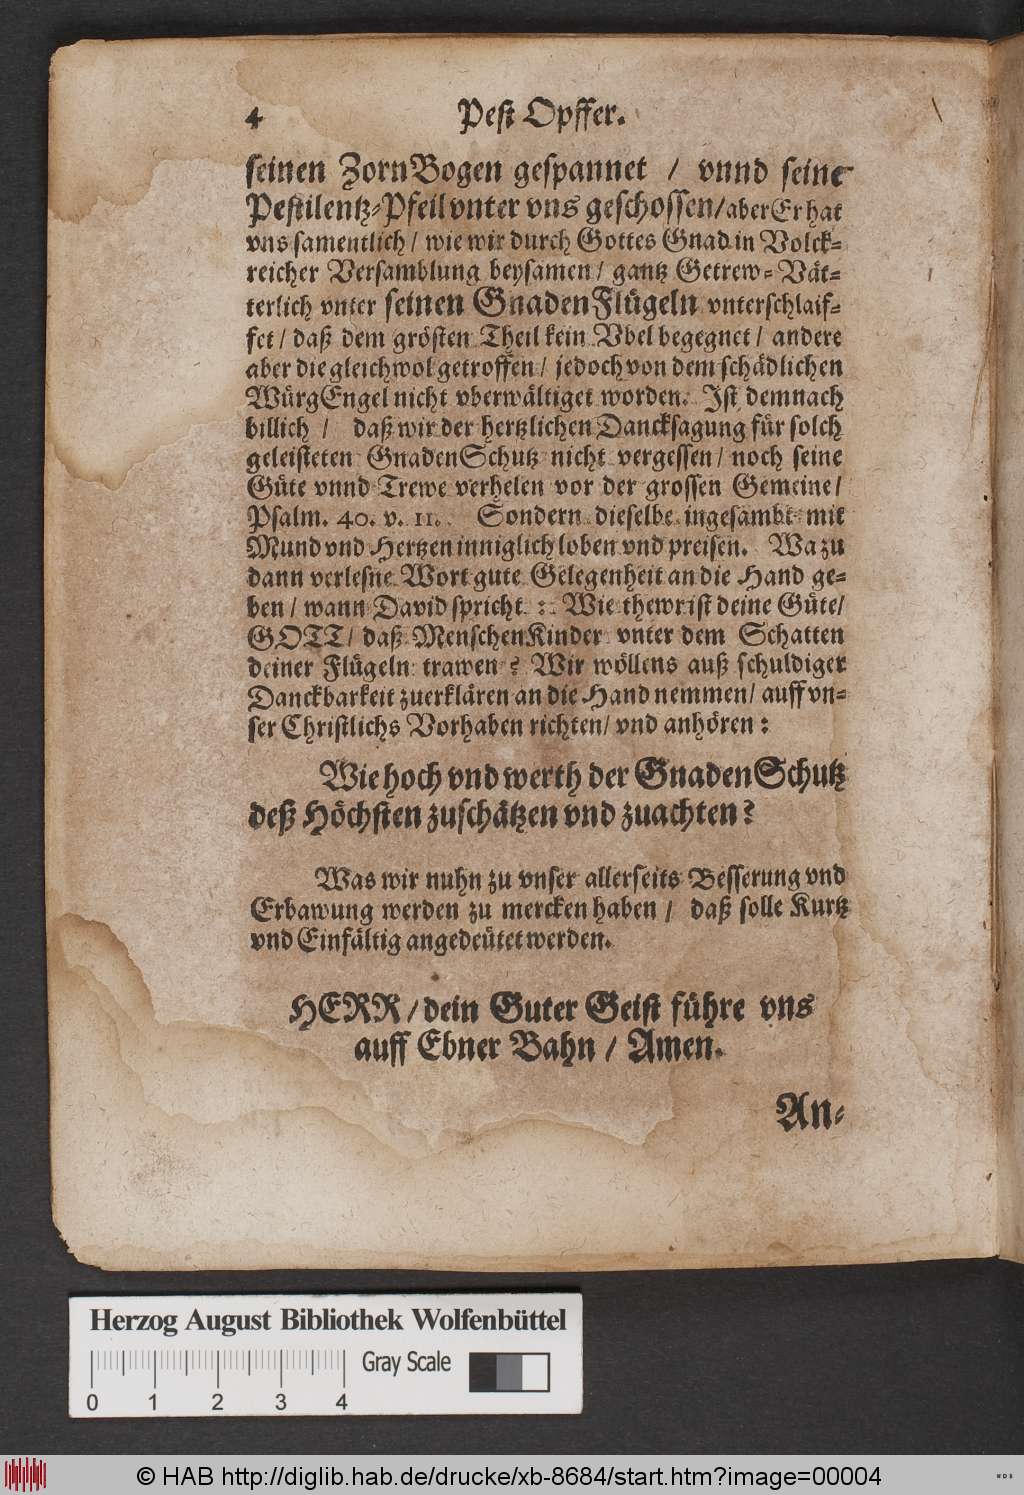 4 Pest Opffer.
seinen ZornBogen gespannet / vnnd seine
Pestilentz-Pfeil vnter vns geschossen/ aber Er hat
vns samentlich / wie wir durch Gottes Gnad in Volck-
reicher Versamblung beysamen / gantz Getrew-Vät-
terlich vnter seinen GnadenFlügeln vnterschlaif-
fet / daß dem grösten Theil kein Vbel begegnet / andere
aber die gleichwol getroffen / jedoch von dem schädlichen
WürgEngel nicht vberwältiget worden. Ist demnach
billich / daß wir der hertzlichen Dancksagung für solch
geleisteten GnadenSchutz nicht vergessen / noch seine
Güte vnnd Trewe verhelen vor der grossen Gemeine /
Psalm. 40. v. 11. Sondern dieselbe ingesambt mit
Mund vnd Hertzen inniglich loben vnd preisen. Wa zu
dann verlesne Wort gute Gelegenheit an die Hand ge-
ben / wann David spricht : Wie thewr ist deine Güte /
GOTT / daß MenschenKinder vnter dem Schatten
deiner Flügeln trawen ? Wir wöllens auß schuldiger
Danckbarkeit zuerklären an die Hand nemmen / auff vn-
ser Christlichs Vorhaben richten / vnd anhören :
Wie hoch vnd werth der GnadenSchutz
deß Höchsten zuschätzen vnd zuachten ?
Was wir nuhn zu vnser allerseits Besserung vnd
Erbawung werden zu mercken haben / daß solle Kurtz
vnd Einfältig angedeütet werden.
HERR / dein Guter Geist führe vns
auff Ebner Bahn / Amen.
An-
Herzog August Bibliothek Wolfenbüttel
Gray Scale
0 1 2 3 4
© HAB http://diglib.hab.de/drucke/xb-8684/start.htm?image=00004